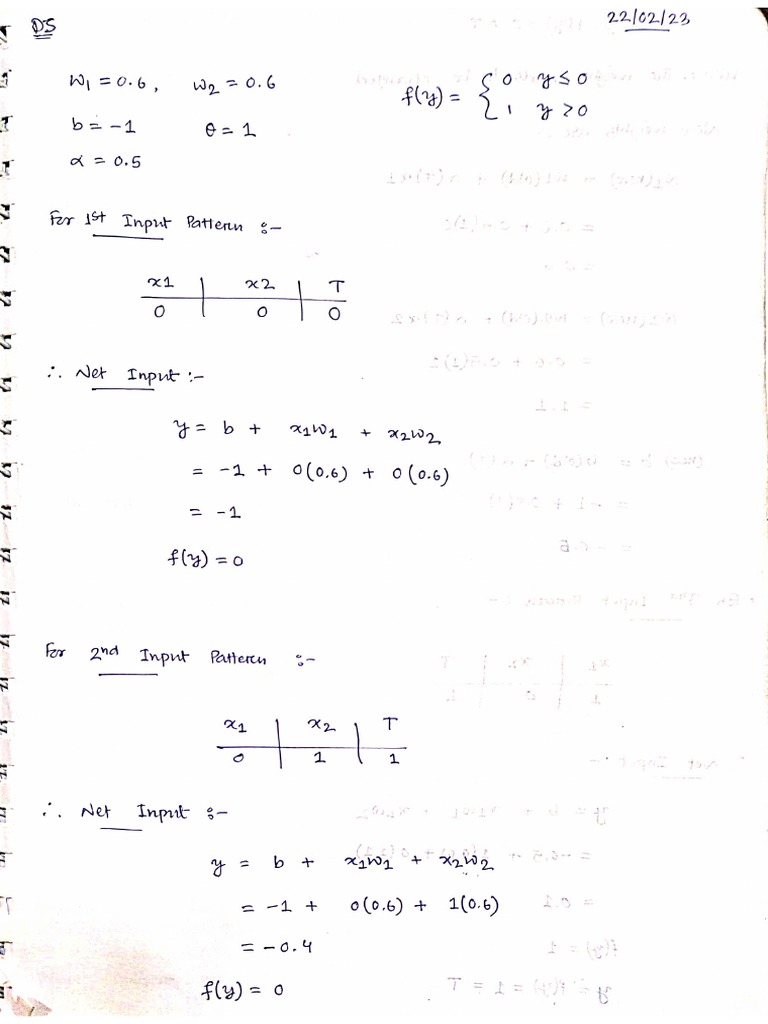 DS
22/02/23
w1 = 0.6, w2 = 0.6
f(y) = { 0 y ≤ 0
1 y > 0
b = -1 θ = 1
α = 0.5
For 1st Input Pattern :-
x1 | x2 | T
0 | 0 | 0
∴ Net Input :-
y = b + x1w1 + x2w2
= -1 + 0(0.6) + 0(0.6)
= -1
f(y) = 0
For 2nd Input Pattern :-
x1 | x2 | T
0 | 1 | 1
∴ Net Input :-
y = b + x1w1 + x2w2
= -1 + 0(0.6) + 1(0.6)
= -0.4
f(y) = 0